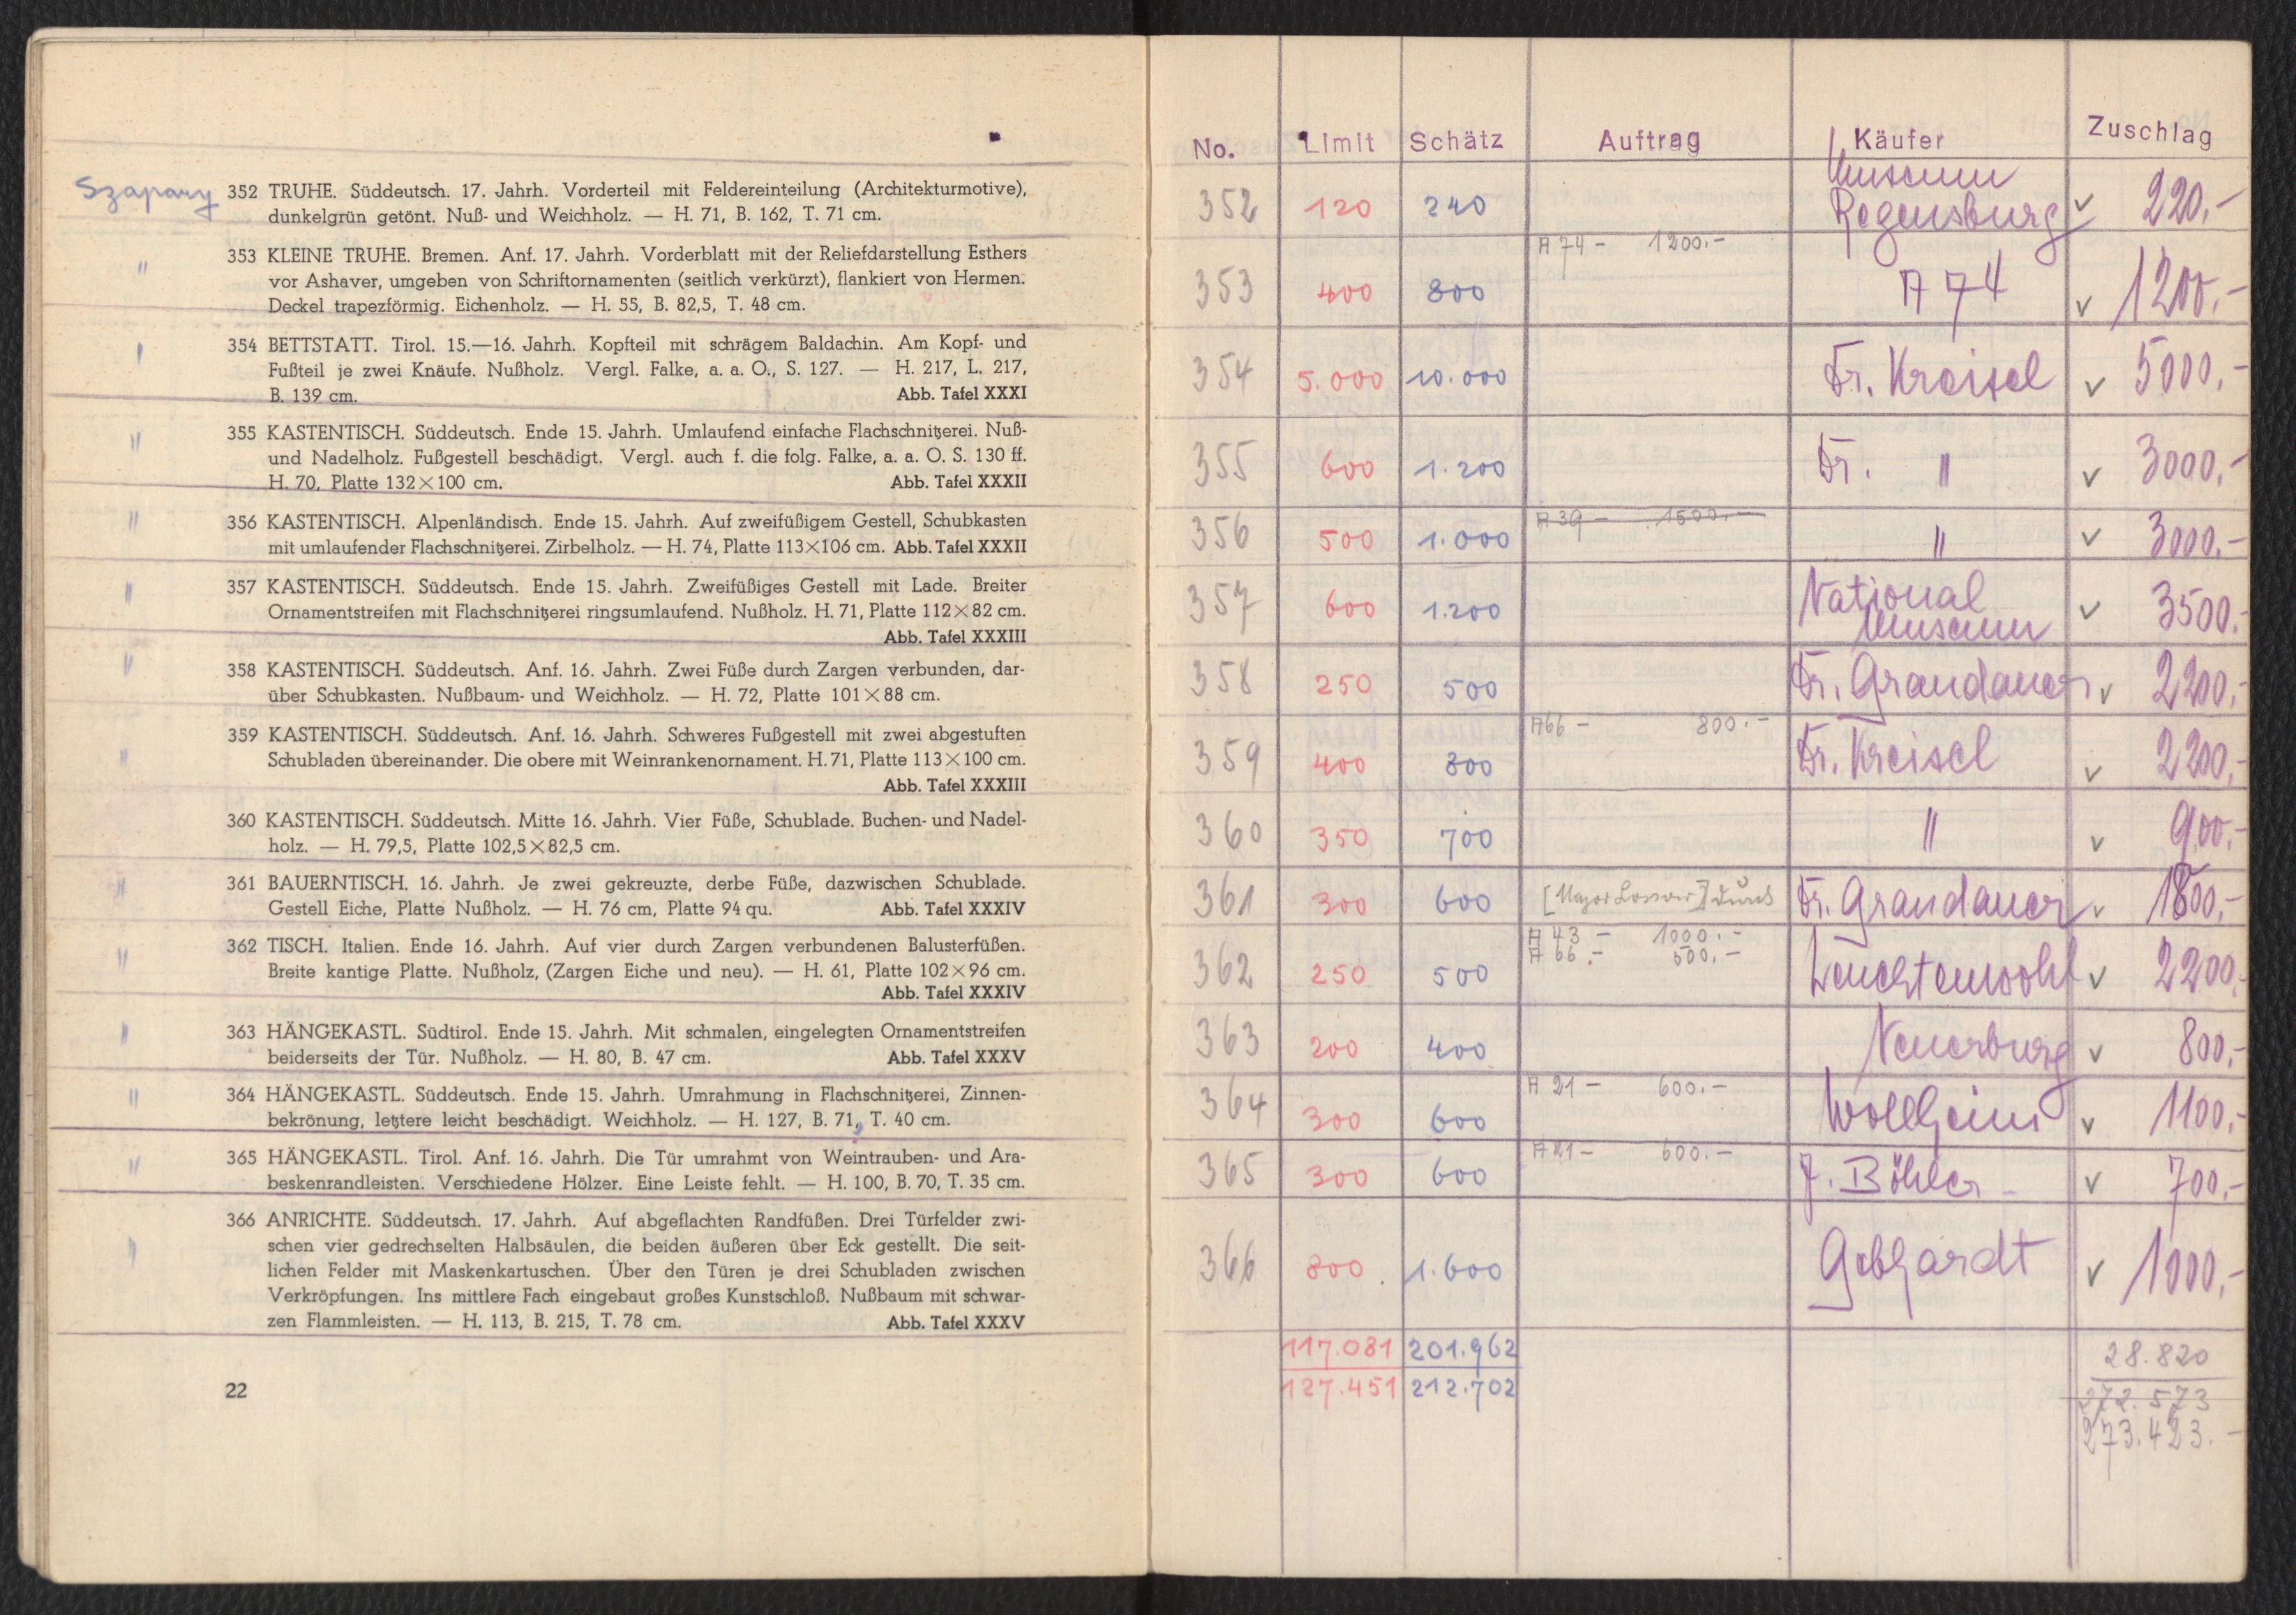 Szapary 352 TRUHE. Süddeutsch. 17. Jahrh. Vorderteil mit Feldereinteilung (Architekturmotive),
dunkelgrün getönt. Nuß- und Weichholz. — H. 71, B. 162, T. 71 cm.
" 353 KLEINE TRUHE. Bremen. Anf. 17. Jahrh. Vorderblatt mit der Reliefdarstellung Esthers
vor Ashaver, umgeben von Schriftornamenten (seitlich verkürzt), flankiert von Hermen.
Deckel trapezförmig. Eichenholz. — H. 55, B. 82,5, T. 48 cm.
" 354 BETTSTATT. Tirol. 15.—16. Jahrh. Kopfteil mit schrägem Baldachin. Am Kopf- und
Fußteil je zwei Knäufe. Nußholz. Vergl. Falke, a. a. O., S. 127. — H. 217, L. 217,
B. 139 cm. Abb. Tafel XXXI
" 355 KASTENTISCH. Süddeutsch. Ende 15. Jahrh. Umlaufend einfache Flachschnitzerei. Nuß-
und Nadelholz. Fußgestell beschädigt. Vergl. auch f. die folg. Falke, a. a. O. S. 130 ff.
H. 70, Platte 132×100 cm. Abb. Tafel XXXII
" 356 KASTENTISCH. Alpenländisch. Ende 15. Jahrh. Auf zweifüßigem Gestell, Schubkasten
mit umlaufender Flachschnitzerei. Zirbelholz. — H. 74, Platte 113×106 cm. Abb. Tafel XXXII
" 357 KASTENTISCH. Süddeutsch. Ende 15. Jahrh. Zweifüßiges Gestell mit Lade. Breiter
Ornamentstreifen mit Flachschnitzerei ringsumlaufend. Nußholz. H. 71, Platte 112×82 cm.
Abb. Tafel XXXIII
" 358 KASTENTISCH. Süddeutsch. Anf. 16. Jahrh. Zwei Füße durch Zargen verbunden, dar-
über Schubkasten. Nußbaum- und Weichholz. — H. 72, Platte 101×88 cm.
" 359 KASTENTISCH. Süddeutsch. Anf. 16. Jahrh. Schweres Fußgestell mit zwei abgestuften
Schubladen übereinander. Die obere mit Weinrankenornament. H. 71, Platte 113×100 cm.
Abb. Tafel XXXIII
360 KASTENTISCH. Süddeutsch. Mitte 16. Jahrh. Vier Füße, Schublade. Buchen- und Nadel-
holz. — H. 79,5, Platte 102,5×82,5 cm.
" 361 BAUERNTISCH. 16. Jahrh. Je zwei gekreuzte, derbe Füße, dazwischen Schublade.
Gestell Eiche, Platte Nußholz. — H. 76 cm, Platte 94 qu. Abb. Tafel XXXIV
" 362 TISCH. Italien. Ende 16. Jahrh. Auf vier durch Zargen verbundenen Balusterfüßen.
Breite kantige Platte. Nußholz, (Zargen Eiche und neu). — H. 61, Platte 102×96 cm.
Abb. Tafel XXXIV
" 363 HÄNGEKASTL. Südtirol. Ende 15. Jahrh. Mit schmalen, eingelegten Ornamentstreifen
beiderseits der Tür. Nußholz. — H. 80, B. 47 cm. Abb. Tafel XXXV
" 364 HÄNGEKASTL. Süddeutsch. Ende 15. Jahrh. Umrahmung in Flachschnitzerei, Zinnen-
bekrönung, letztere leicht beschädigt. Weichholz. — H. 127, B. 71, T. 40 cm.
" 365 HÄNGEKASTL. Tirol. Anf. 16. Jahrh. Die Tür umrahmt von Weintrauben- und Ara-
beskenrandleisten. Verschiedene Hölzer. Eine Leiste fehlt. — H. 100, B. 70, T. 35 cm.
" 366 ANRICHTE. Süddeutsch. 17. Jahrh. Auf abgeflachten Randfüßen. Drei Türfelder zwi-
schen vier gedrechselten Halbsäulen, die beiden äußeren über Eck gestellt. Die seit-
lichen Felder mit Maskenkartuschen. Über den Türen je drei Schubladen zwischen
Verkröpfungen. Ins mittlere Fach eingebaut großes Kunstschloß. Nußbaum mit schwar-
zen Flammleisten. — H. 113, B. 215, T. 78 cm. Abb. Tafel XXXV
22
No. Limit Schätz Auftrag Käufer Zuschlag
Museum
352 120 240 Regensburg v 220.-
A 74 - 1200.-
353 400 800 A 74 v 1200.-
354 5.000 10.000 Dr. Kreisel v 5000.-
355 600 1.200 Dr. " v 3000.-
A 39 - 1500.-
356 500 1.000 " v 3000.-
357 600 1.200 National v 3500.-
Museum
358 250 500 Dr. Grandauer v 2200.-
A 66 - 800.-
359 400 800 Dr. Kreisel v 2200.-
360 350 700 " v 900.-
361 300 600 [Major] durch Dr. Grandauer v 1800.-
A 43 - 1000.-
A 66 - 500.-
362 250 500 v 2200.-
363 200 400 Neuerburg v 800.-
A 21 - 600.-
364 300 600 Wollheim v 1100.-
A 21 - 600.-
365 300 600 J. Böhler v 700.-
366 800 1.600 Gebhardt v 1000.-
117.081 201.962 28.820
127.451 212.702 272.573
273.423.-